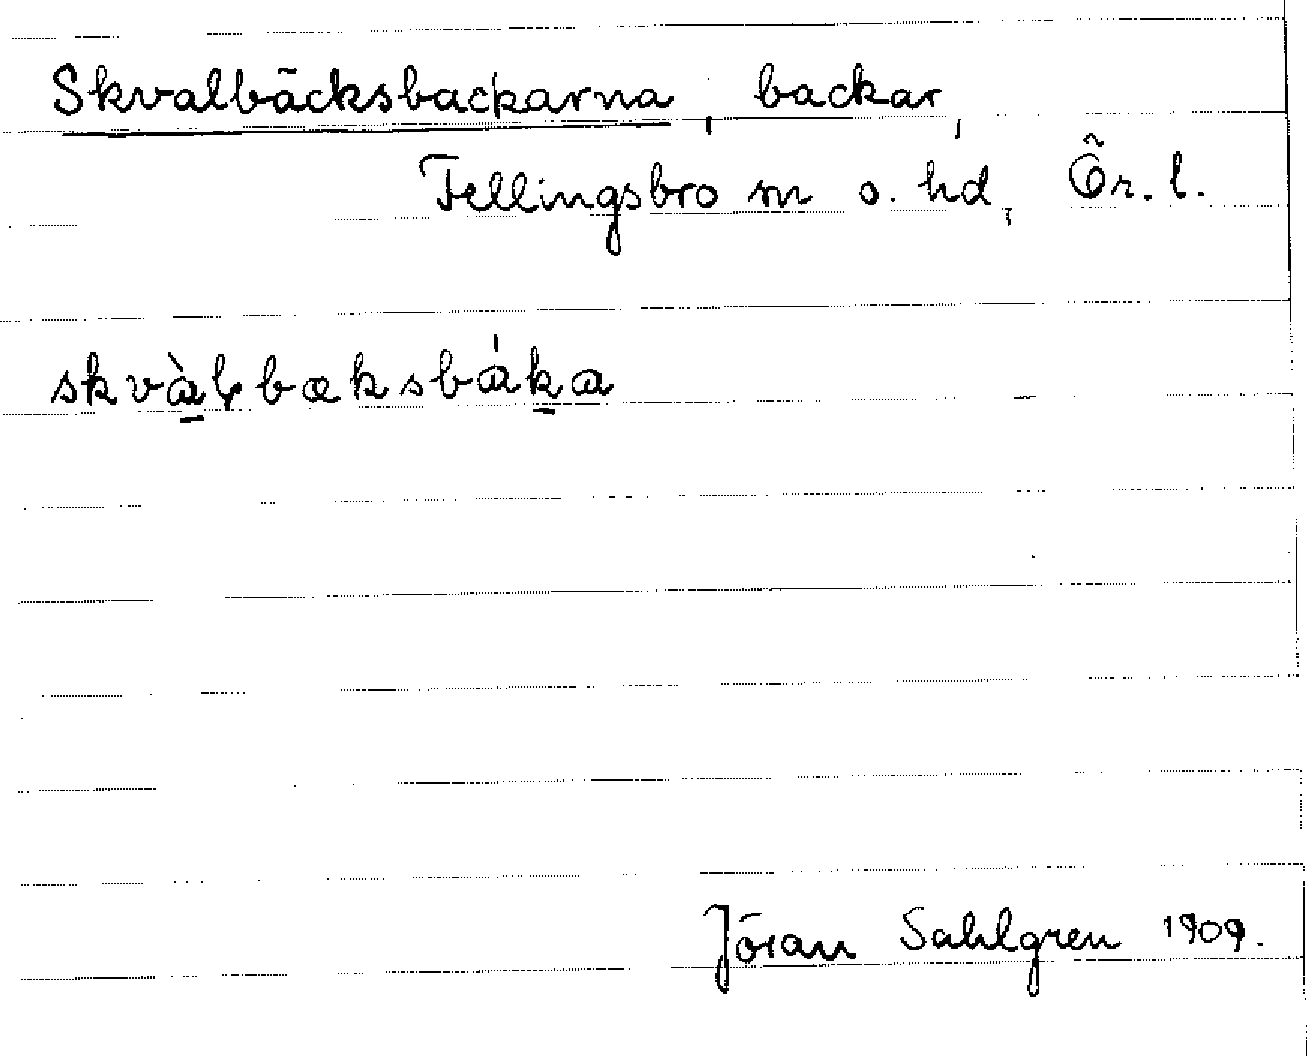 Skvalbäcksbackarna, backar,
Fellingsbro sn o. hd, Ör. l.
skvà̱ɽbæksbáḵa
Jöran Sahlgren 1909.